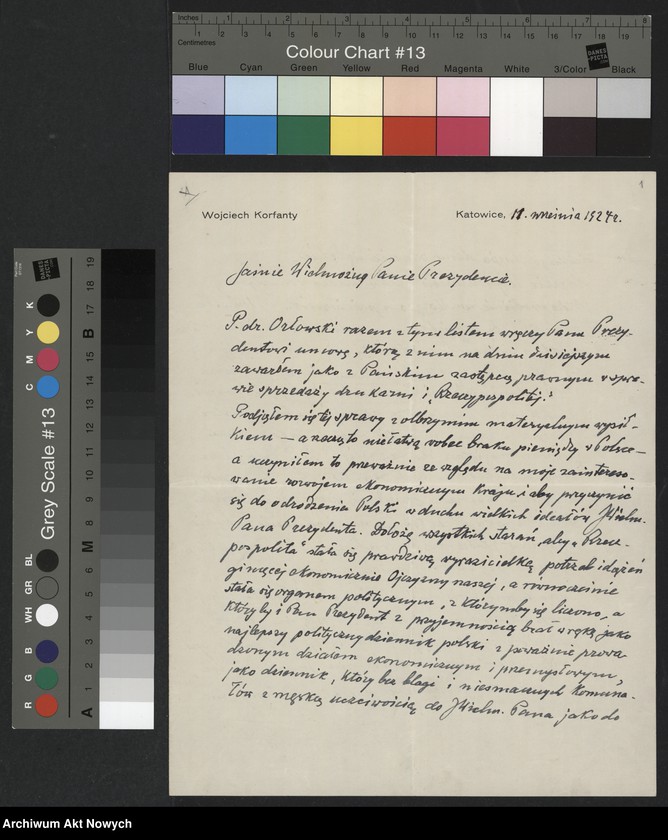 Inches 1 2 3 4 5 6 7 8
1 2 3 4 5 6 7 8 9 10 11 12 13 14 15 16 17 18 19
Centimetres
Colour Chart #13
DANES PICTA
Blue Cyan Green Yellow Red Magenta White 3/Color Black
DANES PICTA
Grey Scale #13
R G B WH GR BL C M Y K
A 1 2 3 4 5 6 M 8 9 10 11 12 13 14 15 B 17 18 19
1
Wojciech Korfanty
Katowice, 11. września 1924 r.
Jaśnie Wielmożny Panie Prezydencie.
P. dr. Orłowski razem z tym listem wręczy Panu Prezy-
dentowi umowę, którą z nim na dniu dzisiejszym
zawarłem jako z Pańskim zastępcą prawnym w spra-
wie sprzedaży drukarni i „Rzeczypospolitej."
Podjąłem się tej sprawy z olbrzymim materyalnym wysił-
kiem — a rzecz to niełatwa wobec braku pieniędzy w Polsce —
a uczyniłem to przeważnie ze względu na moje zaintereso-
wanie rozwojem ekonomicznym kraju i aby przyczynić
się do odrodzenia Polski w duchu wielkich ideałów JWielm.
Pana Prezydenta. Dołożę wszystkich starań, aby „Rzecz-
pospolita" stała się prawdziwą wyrazicielką potrzeb i dążeń
ginącej ekonomicznie Ojczyzny naszej, a równocześnie
stała się organem politycznym, z którymby się liczono, a
który by i Pan Prezydent z przyjemnością brał w rękę jako
najlepszy polityczny dziennik polski z poważnie prowa-
dzonym działem ekonomicznym i przemysłowym,
jako dziennik, który bez blagi i niesmacznych komuna-
łów z męską uczciwością do JWielm. Pana jako do
Archiwum Akt Nowych